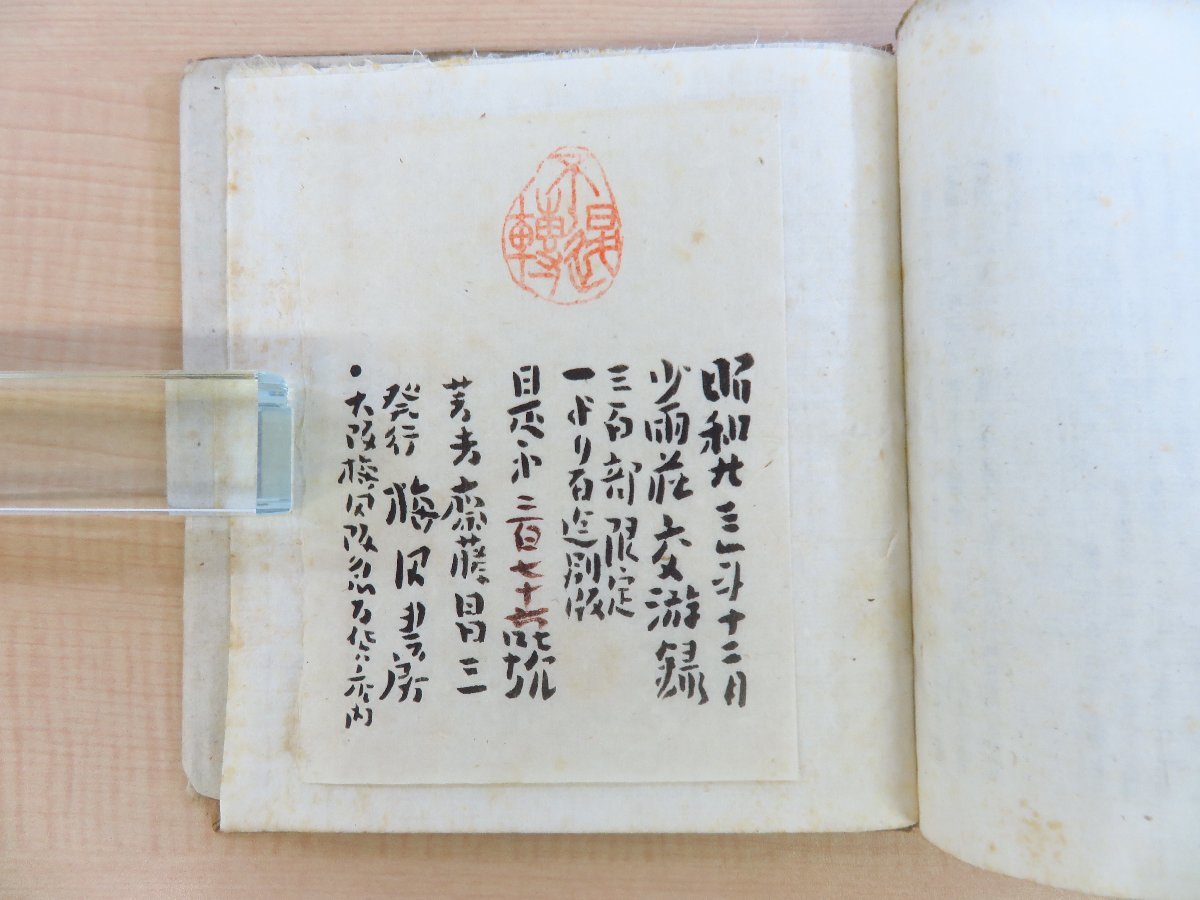 不退轉
昭和廿三年十二月
少雨荘交游録
三百部限定
一より百迄別版
二百七十六號
著者 齋藤昌三
発行 梅田書房
・大阪梅田阪急百貨店内